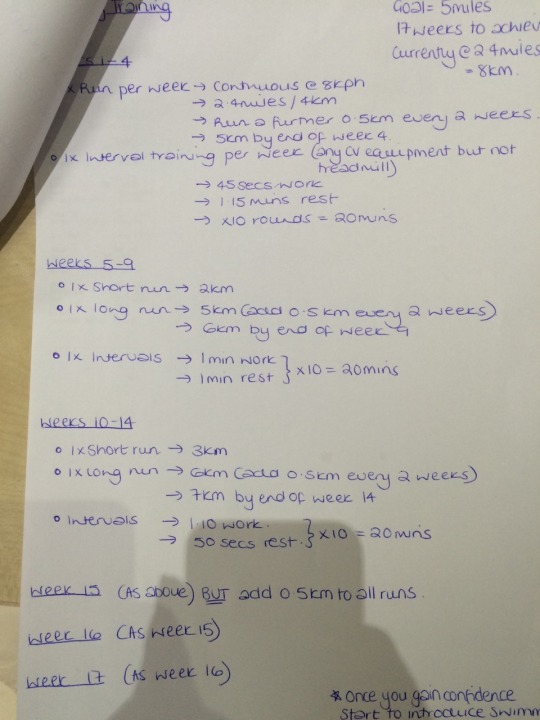 Training
Goal = 5miles
17 weeks to achiev
Currently @ 2.4miles
= 8km.
s 1-4
x Run per week → Continuous @ 8kph
→ 2.4miles / 4km
→ Run a further 0.5km every 2 weeks.
→ 5km by end of week 4.
• 1x Interval training per week (any CV equipment but not
treadmill)
→ 45secs work
→ 1.15 mins rest
→ x10 rounds = 20mins
Weeks 5-9
• 1x short run → 2km
• 1x long run → 5km (add 0.5km every 2 weeks)
→ 6km by end of week 9
• 1x Intervals → 1min work
→ 1min rest } x10 = 20mins
Weeks 10-14
• 1x short run → 3km
• 1x long run → 6km (add 0.5km every 2 weeks)
→ 7km by end of week 14
• Intervals → 1.10 work.
→ 50 secs rest. } x10 = 20mins
Week 15 (As above) BUT add 0.5km to all runs.
Week 16 (As week 15)
Week 17 (As week 16)
* Once you gain confidence
start to introduce swimm